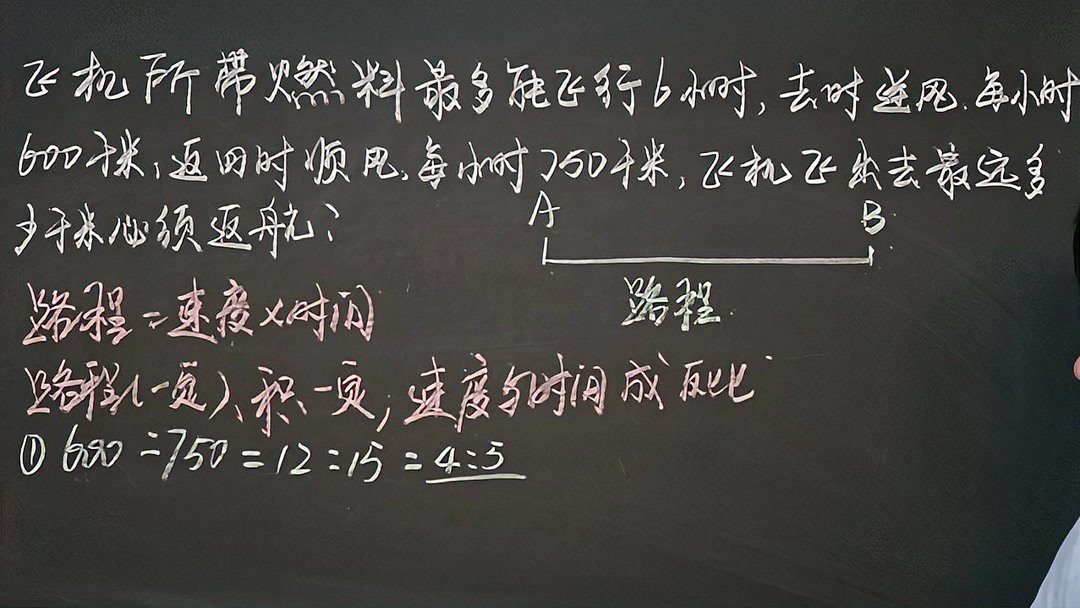 飞机所带燃料最多能飞行6小时,去时逆风.每小时
600千米,返回时顺风,每小时750千米,飞机飞出去最远多
少千米必须返航?
A B
路程.
路程=速度×时间
路程(一定)、积一定,速度与时间成反比
① 600:750=12:15=4:5